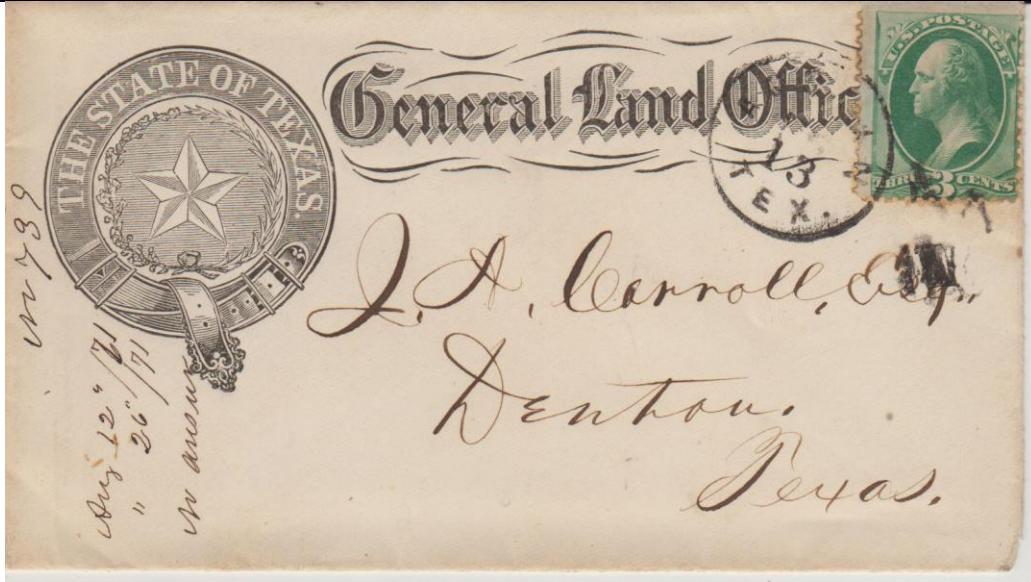 THE STATE OF TEXAS.
General Land Offic
U.S. POSTAGE
THRE 3 CENTS
13
TEX.
J. A. Carroll, Esq.
Denton.
Texas.
739
Aug 12"/71
" 26"/71